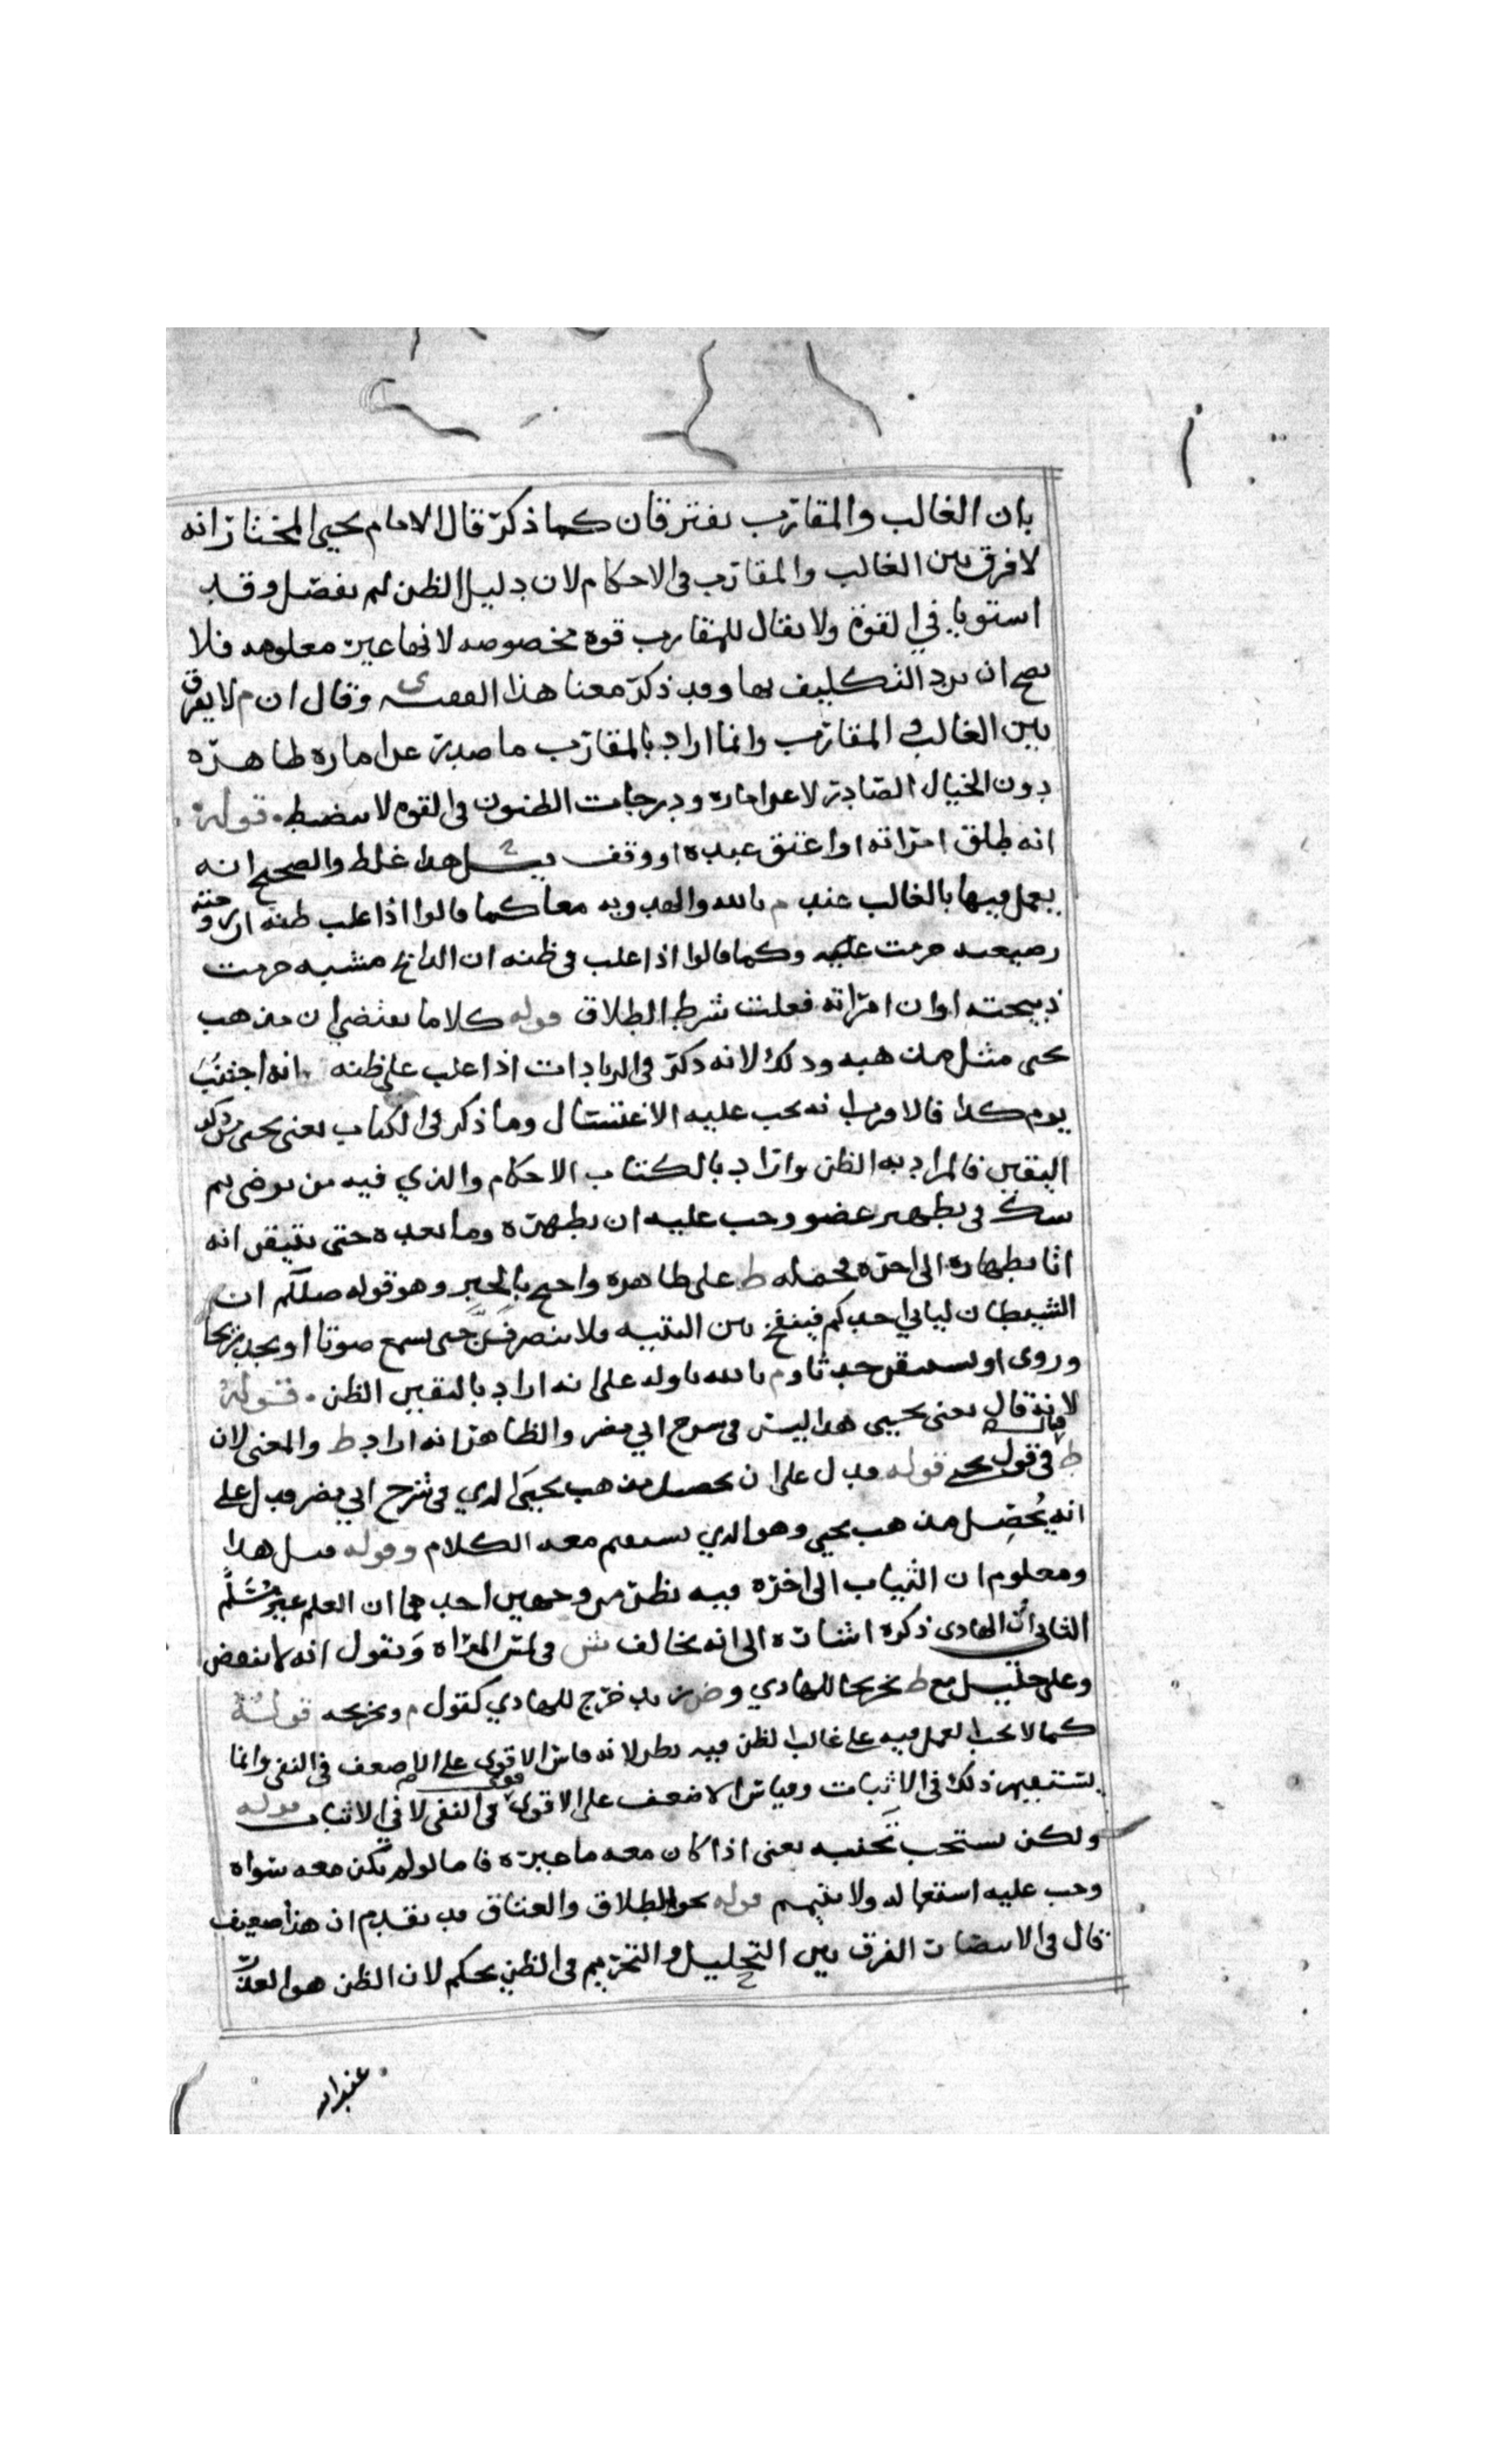 بان الغالب والمقارب يفترقان كما ذكر قال الامام يحيى المختار انه
لا فرق بين الغالب والمقارب في الاحكام لان دليل الظن لم يفصل وقد
استويا في القوة ولا يقال للمقارب قوة مخصوصه لانها غير معلومه فلا
يصح ان يرد التكليف بها وقد ذكر معنا هذا الفقيه ى وقال ان م لا يفرق
بين الغالب والمقارب وانما اراد بالمقارب ما صدر عن اماره ظاهره
دون الخيال الصادر لا عن اماره ودرجات الظنون في القوه لا تنضبط قوله
انه طلق امراته او اعتق عبده او وقف هذا غلط والصحيح انه
يعمل فيها بالغالب عند م بالله والهدويه معا كما قالوا اذا غلب ظنه ان زوجته
رضيعته حرمت عليه وكما قالوا اذا غلب في ظنه ان الذابح مشبه حرمت
ذبيحته او ان امراته فعلت شرط الطلاق قوله كلاما يقتضي ان مذهب
يحيى مثل مذهبه وذلك لانه ذكر في الزيادات اذا غلب على ظنه انه اجنب
يوم كذا فالاقرب انه يجب عليه الاغتسال وما ذكر في الكتاب يعني يحيى من ذكر
اليقين فالمراد به الظن واراد بالكتاب الاحكام والذي فيه من توضى ثم
شك في تطهير عضو وجب عليه ان يطهره وما بعده حتى يتيقن انه
اتا بطهارة الى اخره فحمله ط على ظاهره واحتج بالخبر وهو قوله صللم ان
الشيطان لياتي احدكم فينفخ بين اليتيه فلا ينصرفن حتى يسمع صوتا او يجد ريحا
وروى او يستيقن حدثا وم بالله تاوله على انه اراد باليقين الظن قوله
لانه قال يعني يحيى هذا ليس في شرح ابي مضر والظاهر انه اراد ط والمعنى لان
ط قال في قول يحيى قوله فدل على ان تحصيل مذهب يحيى الذي في شرح ابي مضر فدل على
انه يحصل مذهب يحيى وهو الذي يستقيم معه الكلام وقوله قبل هذا
ومعلوم ان الثياب الى اخره فيه نظر من وجهين احدهما ان العلم غير مسلم
الثاني ان الهادي ذكره اشارة الى انه يخالف ش في لمس المراه ويقول انه لا ينقض
وعلى خليل مع ط تخريجا للهادي وض زيد خرج للهادي كقول م وتخريجه قوله
كما لا يجب العمل فيه على غالب الظن فيه نظر لانه قاس الاقوى على الاضعف في النفي وانما
يستقيم ذلك في الاثبات وقياس الاضعف على الاقوى قوي في النفي لا في الاثبات قوله
ولكن يستحب تجنبه يعني اذا كان معه ما غيره فاما لو لم يكن معه سواه
وجب عليه استعماله ولا يتيمم قوله نحو الطلاق والعتاق قد تقدم ان هذا ضعيف
قال في الانتصار الفرق بين التحليل والتحريم في الظن تحكم لان الظن هو العلة